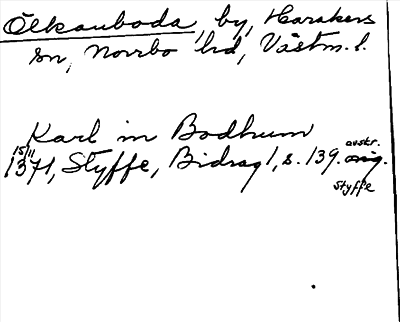 Ölkanboda, by, Harakers
sn, Norrbo hd, Västm. l.
Karl in Bodhum
15/11 avskr.
1371, Styffe, Bidrag 1, s. 139. orig.
Styffe